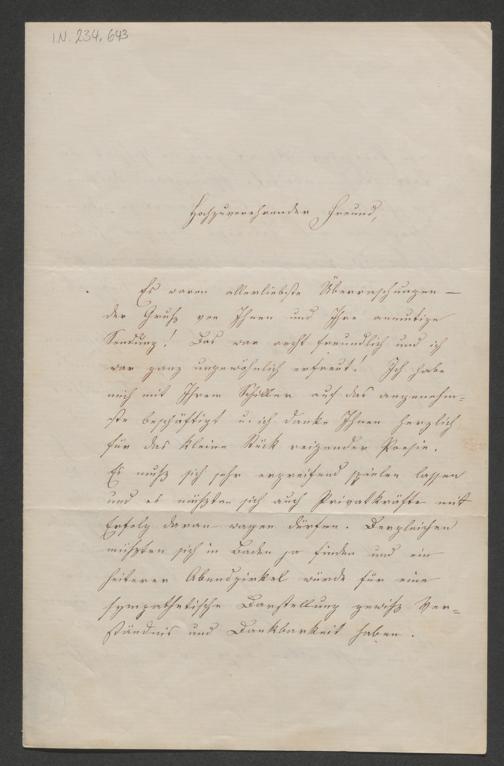 I.N. 234.643
Hochzuverehrender Freund,
Es waren allerliebste Überraschungen —
der Gruß von Ihnen und Ihre anmutige
Sendung! Das war recht freundlich und ich
war ganz ungewöhnlich erfreut! Ich habe
mich mit Ihrem Schiller auf das angenehm-
ste beschäftigt u. ich danke Ihnen herzlich
für das kleine Stück reizender Poesie.
Es muß sich sehr ergreifend spielen lassen
und es müßten sich auch Privatkräfte mit
Erfolg daran wagen dürfen. Dergleichen
müßten sich in Baden ja finden und ein
heiterer Abendzirkel würde für eine
sympathetische Darstellung gewiß Ver-
ständnis und Dankbarkeit haben.